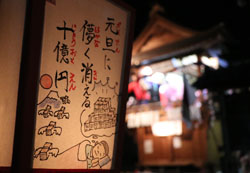 元旦に
儚く消える
十億円